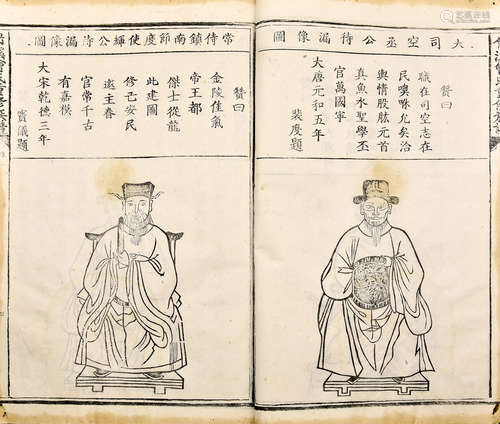 大司空丞公待漏像圖
贊曰
職在司空志在
民噢咻允矣洽
輿情股肱元首
真魚水聖學丕
官萬國寧
大唐元和五年
裴度題
常侍鎮南節度使輝公待漏像圖
贊曰
金陵佳氣
帝王都
傑士從龍
此建圖
修己安民
遜主眷
官常千古
有嘉模
大宋乾德三年
竇儀題